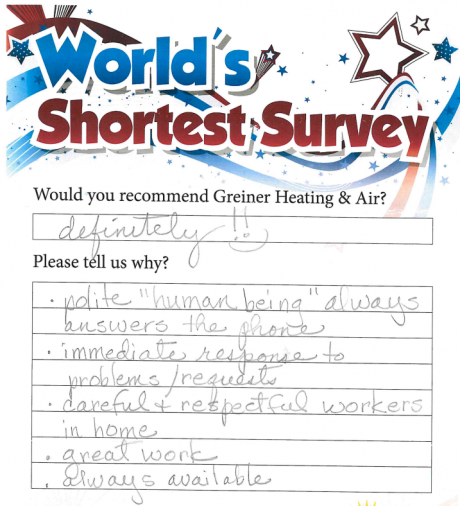 World's
Shortest Survey
Would you recommend Greiner Heating & Air?
definitely!!
Please tell us why?
• polite "human being" always
answers the phone
• immediate response to
problems/requests
• careful + respectful workers
in home
• great work
• always available